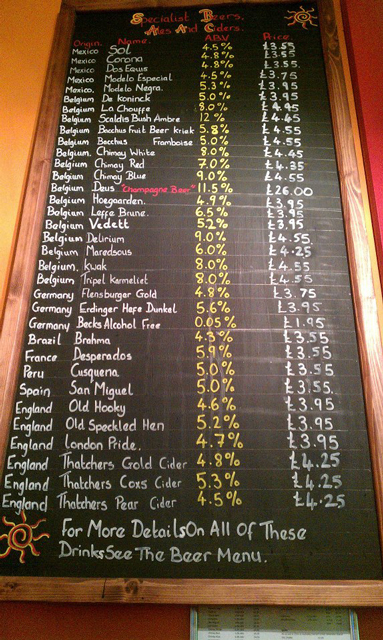 Specialist Beers,
Ales And Ciders.
Origin. Name. ABV Price.
Mexico Sol 4.5% £3.55
Mexico Corona 4.8% £3.55
Mexico Dos Equis 4.8% £3.55
Mexico Modelo Especial 4.5% £3.75
Mexico. Modelo Negra. 5.3% £3.95
Belgium De Koninck 5.0% £3.95
Belgium La Chouffe 8.0% £4.45
Belgium Scaldis Bush Ambre 12% £4.45
Belgium Bacchus Fruit Beer Kriek 5.8% £4.55
Belgium Bacchus Framboise 5.0% £4.55
Belgium. Chimay White 8.0% £4.45
Belgium Chimay Red 7.0% £4.35
Belgium Chimay Blue 9.0% £4.55
Belgium Deus "Champagne Beer" 11.5% £26.00
Belgium Hoegaarden. 4.9% £3.95
Belgium Leffe Brune. 6.5% £3.95
Belgium Vedett 5.2% £3.95
Belgium Delirium 9.0% £4.55
Belgium Maredsous 6.0% £4.25
Belgium. Kwak 8.0% £4.55
Belgium Tripel Karmeliet 8.0% £4.55
Germany Flensburger Gold 4.8% £3.75
Germany Erdinger Hefe Dunkel 5.6% £3.95
Germany Becks Alcohol Free 0.05% £1.95
Brazil Brahma 4.3% £3.55
France Desperados 5.9% £3.55
Peru Cusquena 5.0% £3.55
Spain San Miguel 5.0% £3.55
England Old Hooky 4.6% £3.95
England Old Speckled Hen 5.2% £3.95
England London Pride. 4.7% £3.95
England Thatchers Gold Cider 4.8% £4.25
England Thatchers Coxs Cider 5.3% £4.25
England Thatchers Pear Cider 4.5% £4.25
For More Details On All Of These
Drinks See The Beer Menu.